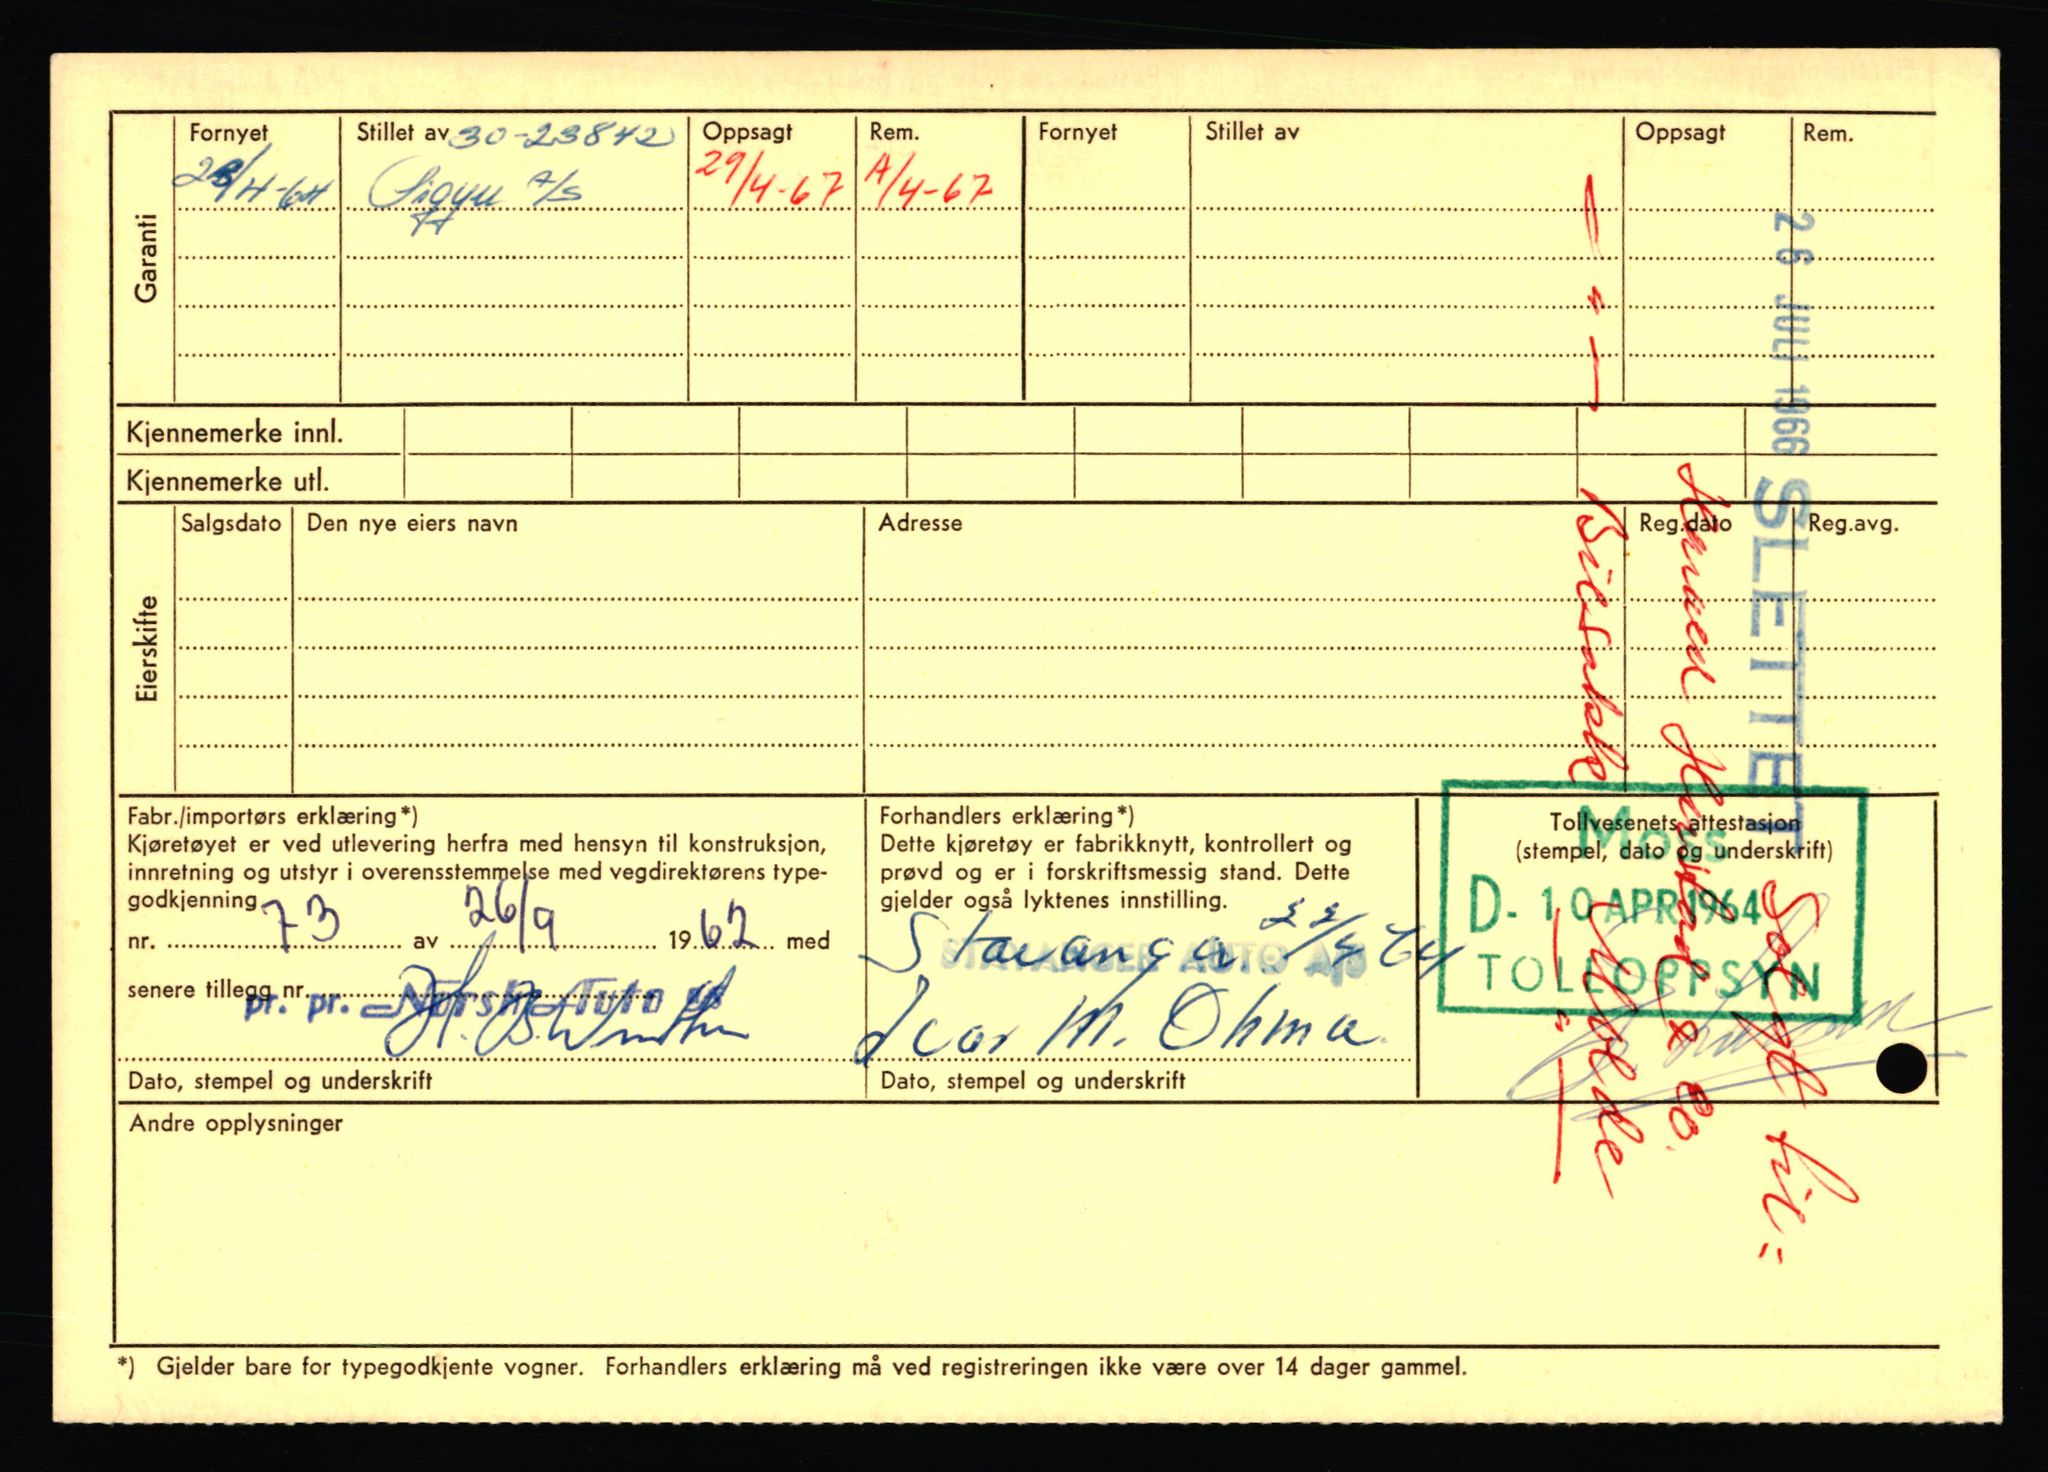 Garanti
Fornyet Stillet av 30-23842 Oppsagt Rem. Fornyet Stillet av Oppsagt Rem.
/4-64 A/S 29/4-67 A/4-67
Kjennemerke innl.
Kjennemerke utl.
Eierskifte
Salgsdato Den nye eiers navn Adresse Reg.dato Reg.avg.
26 JULI 1966 SLETTET
Solgt til:
Bilsakk
Molde
Fabr./importørs erklæring*)
Kjøretøyet er ved utlevering herfra med hensyn til konstruksjon,
innretning og utstyr i overensstemmelse med vegdirektørens type-
godkjenning
nr. 73 av 26/9 1962 med
senere tillegg nr.
pr. pr. Norsk Auto A/S
Dato, stempel og underskrift
Forhandlers erklæring*)
Dette kjøretøy er fabrikknytt, kontrollert og
prøvd og er i forskriftsmessig stand. Dette
gjelder også lyktenes innstilling.
Stavanger 22/4 64
STAVANGER AUTO A/S
Ivar M. Ohma
Dato, stempel og underskrift
Tollvesenets attestasjon
(stempel, dato og underskrift)
Moss
D. 10 APR 1964
TOLLOPPSYN
Andre opplysninger
*) Gjelder bare for typegodkjente vogner. Forhandlers erklæring må ved registreringen ikke være over 14 dager gammel.